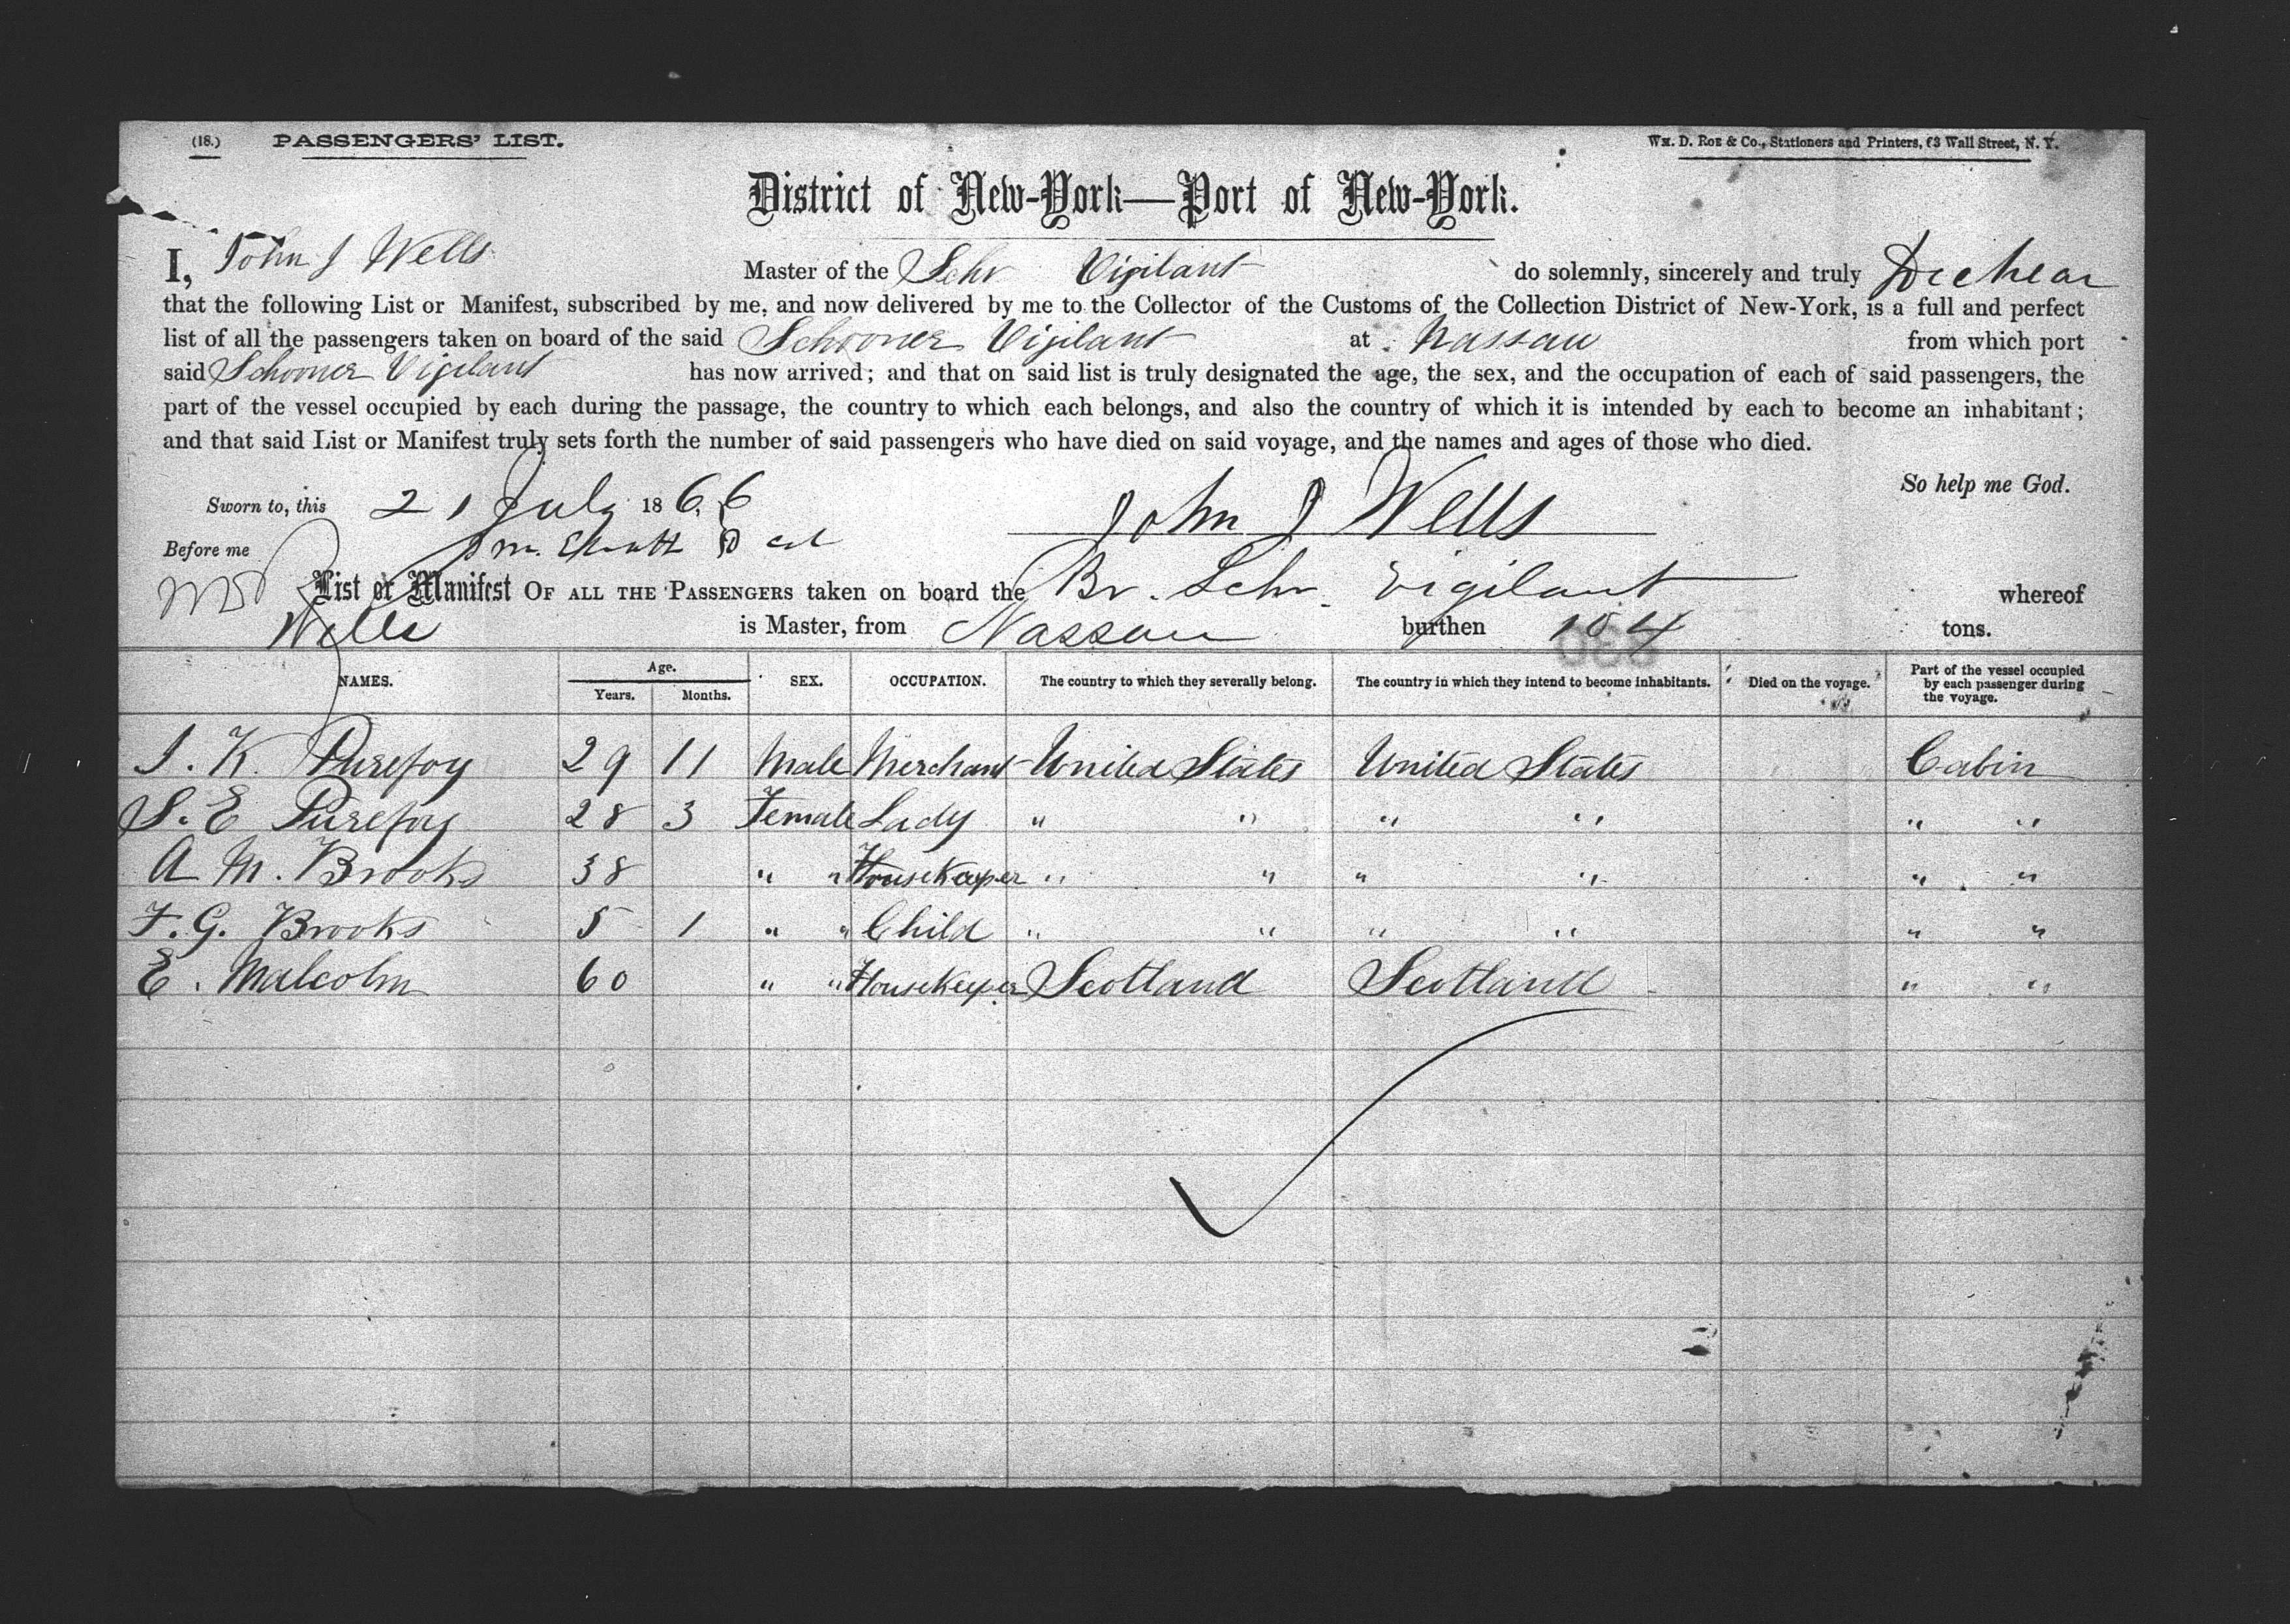 (18.) PASSENGERS' LIST. Wm. D. Roe & Co., Stationers and Printers, 63 Wall Street, N. Y.
District of New-York—Port of New-York.
I, John J Wells Master of the Schr Vigilant do solemnly, sincerely and truly
that the following List or Manifest, subscribed by me, and now delivered by me to the Collector of the Customs of the Collection District of New-York, is a full and perfect
list of all the passengers taken on board of the said Schooner Vigilant at Nassau from which port
said Schooner Vigilant has now arrived; and that on said list is truly designated the age, the sex, and the occupation of each of said passengers, the
part of the vessel occupied by each during the passage, the country to which each belongs, and also the country of which it is intended by each to become an inhabitant;
and that said List or Manifest truly sets forth the number of said passengers who have died on said voyage, and the names and ages of those who died.
So help me God.
Sworn to, this 21 July 1866 John J Wells
Before me
List or Manifest OF ALL THE PASSENGERS taken on board the Br. Schr. Vigilant whereof
Wells is Master, from Nassau burthen 104 tons.
NAMES. Age. Years. Months. SEX. OCCUPATION. The country to which they severally belong. The country in which they intend to become inhabitants. Died on the voyage. Part of the vessel occupied by each passenger during the voyage.
J. K. Purefoy 29 11 Male Merchant United States United States Cabin
S. E Purefoy 28 3 Female Lady " " " " " "
A M. Brooks 38 " " Housekeeper " " " " " "
F. G. Brooks 5 1 " " Child " " " " " "
E. Malcolm 60 " " Housekeeper Scotland Scotland " "